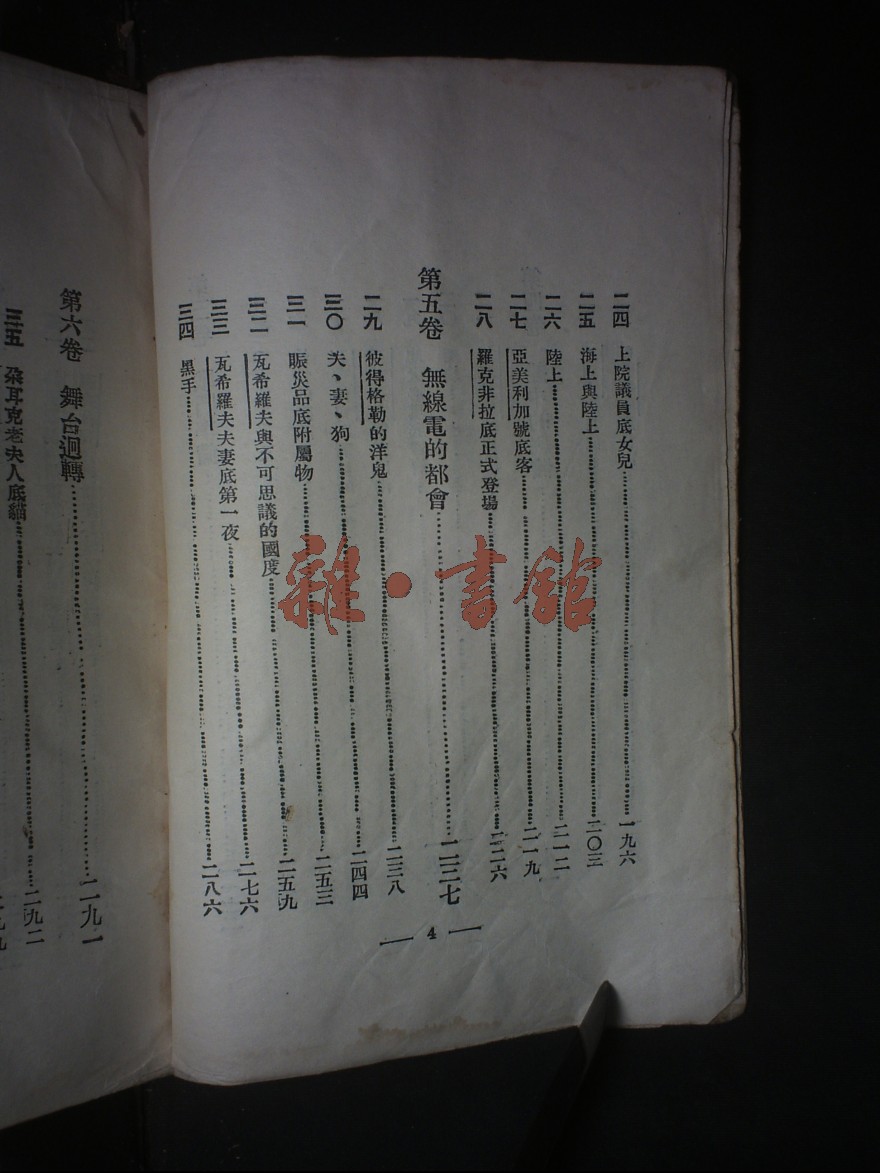 二四 上院議員底女兒……一九六
二五 海上與陸上……二〇三
二六 陸上……二一二
二七 亞美利加號底客……二一九
二八 羅克非拉底正式登場……二二六
第五卷 無線電的都會……二三七
二九 彼得格勒的洋鬼……二三八
三〇 夫、妻、狗……二四四
三一 賑災品底附屬物……二五三
三二 瓦希羅夫與不可思議的國度……二五九
三三 瓦希羅夫夫妻底第一夜……二七六
三四 黑手……二八六
4
第六卷 舞台迴轉……二九一
三五 朶耳克老夫人底貓……二九二
雜·書館